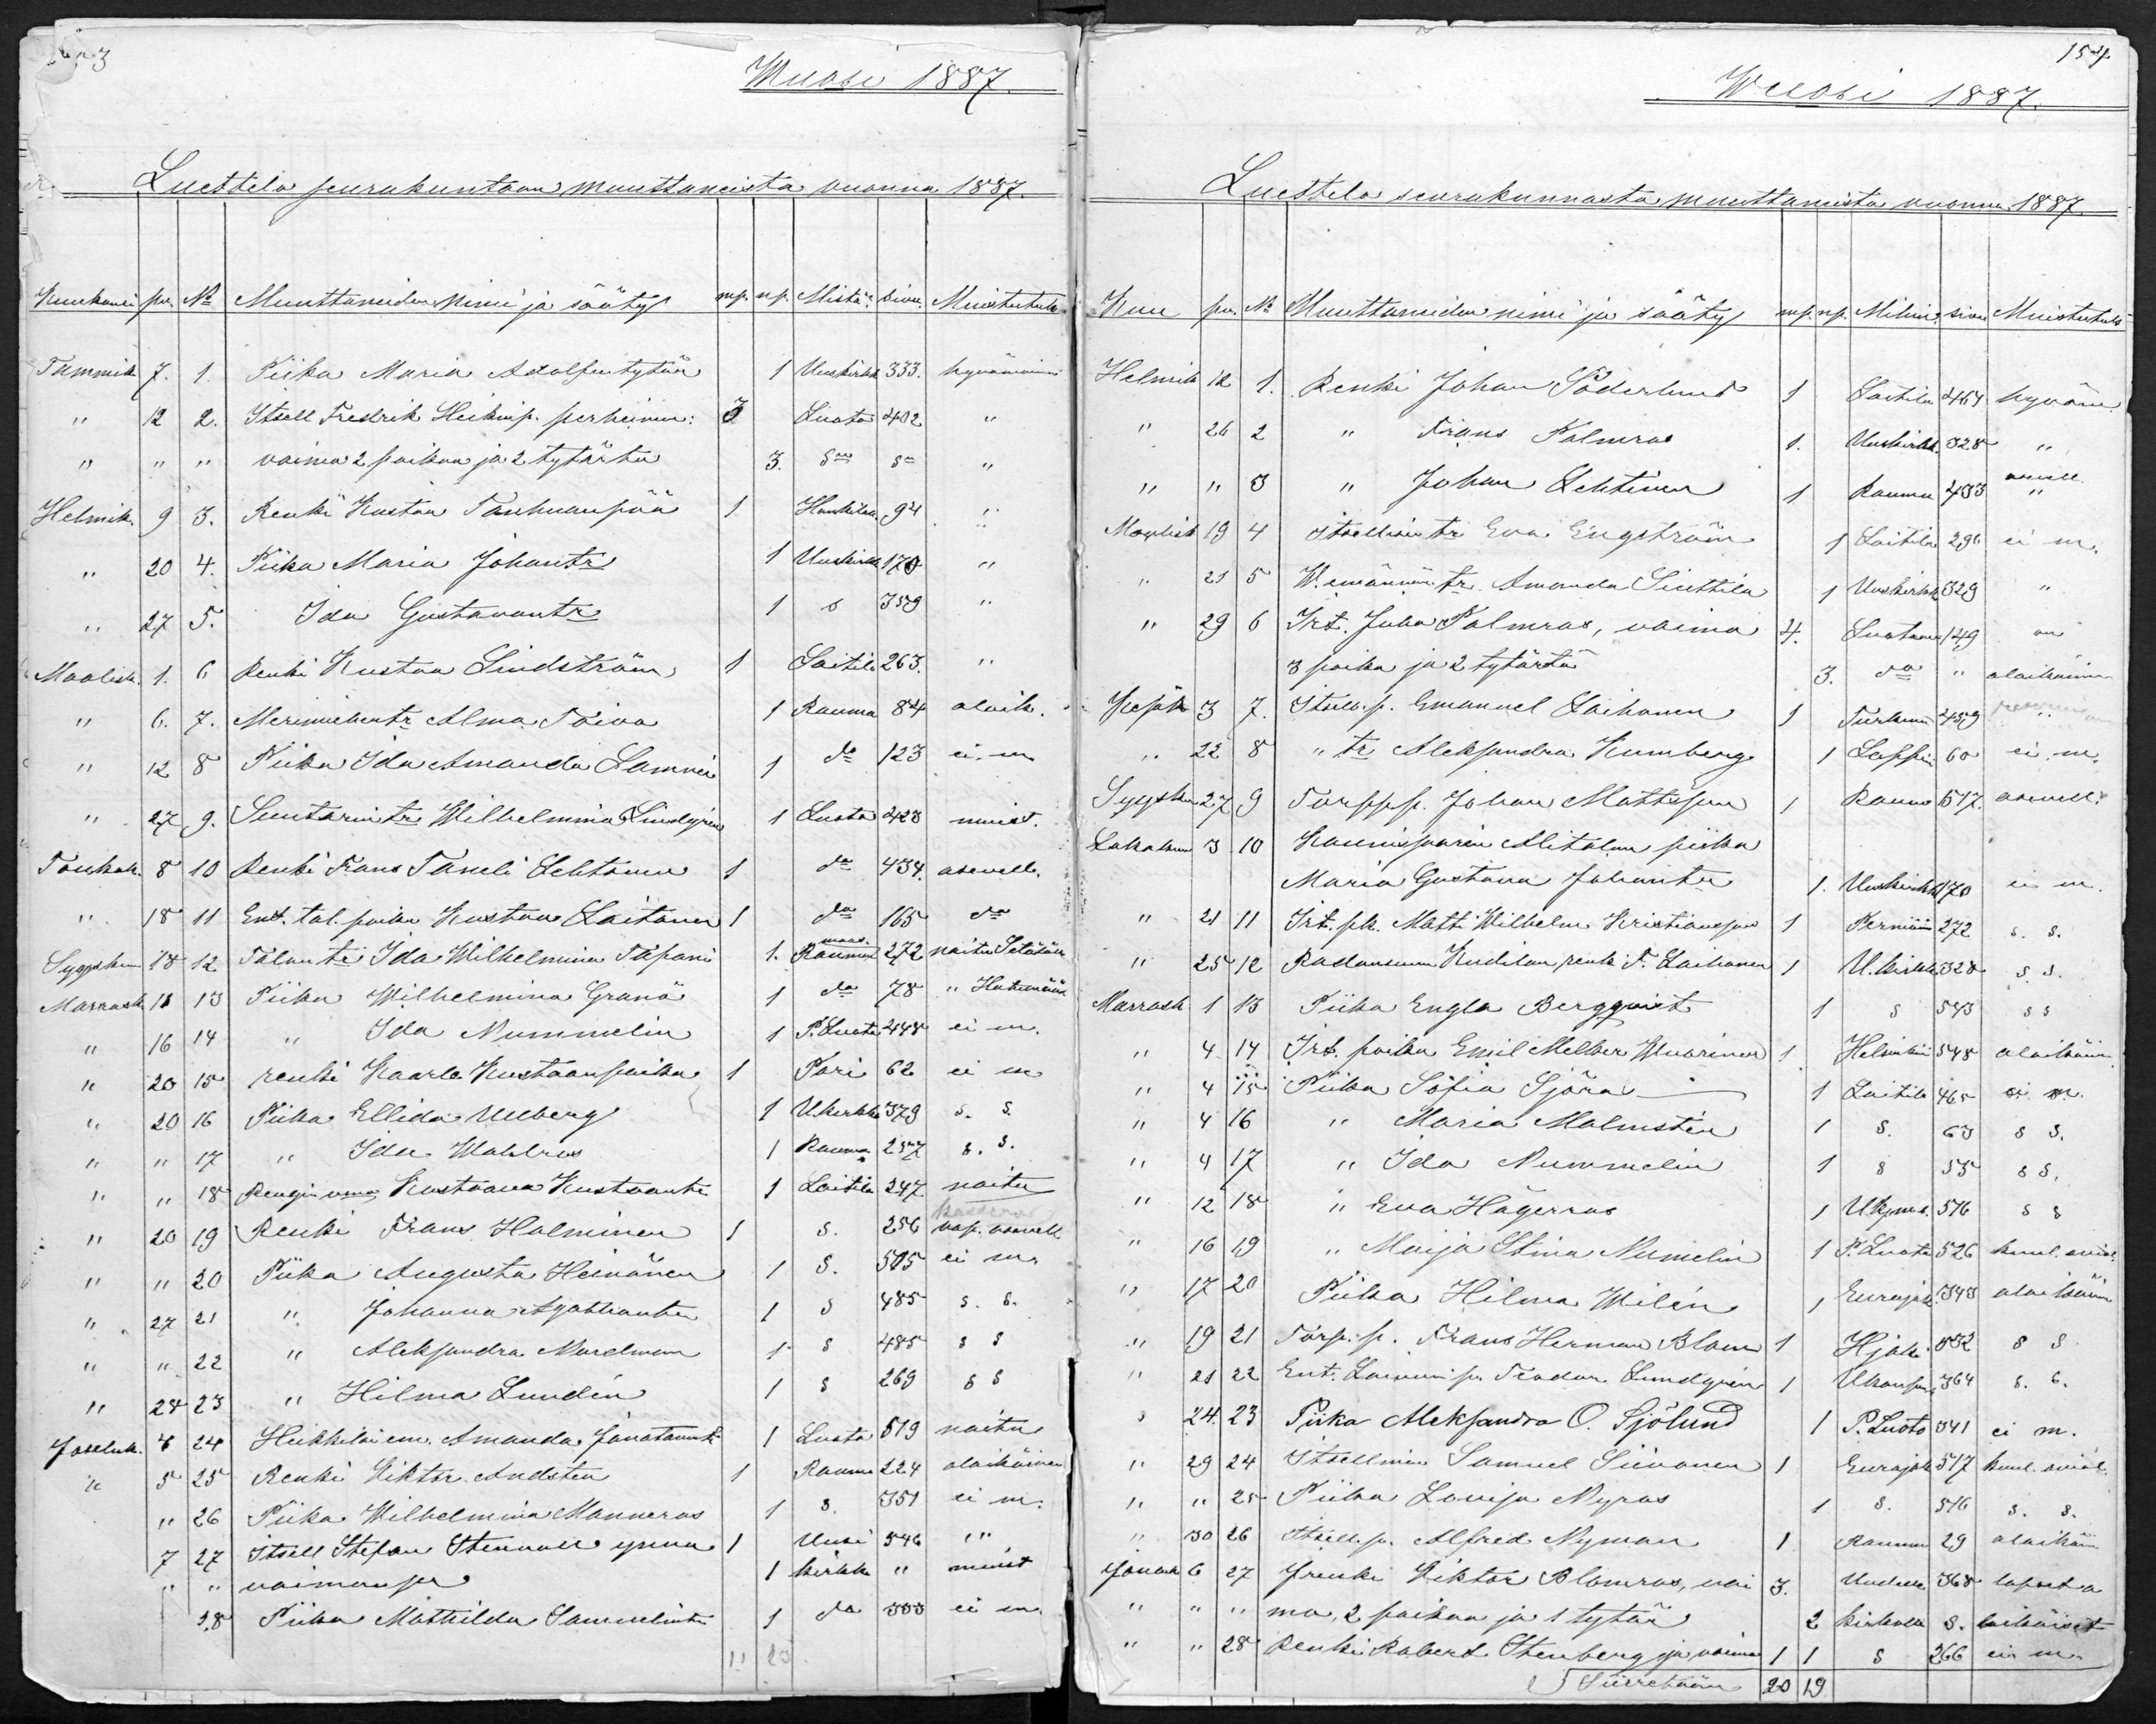 Wuosi 1887.
Luettelo seurakuntaan muuttaneista vuonna 1887.
Kuukausi pv. No Muuttaneiden nimi ja sääty mp. np. Mistä sivu. Muistutuk.
Tammik. 7. 1. Piika Maria Adolfintytär 1 Uusikirkk 333.
" 12 2. Itsell Fredrik Heikinp. perheineen: 3 Luoto 402 "
" " " vaimo 2 poikaa ja 2 tytärtä 3. "
Helmik. 9 3. Renki Kustaa Tanhuanpää 1 94 "
" 20 4. Piika Maria Johantr 1 Uusikirkk 170 "
" 27 5. Ida Gustavantr 1 s 359 "
Maalisk. 1. 6 Renki Kustaa Lindström 1 Laitila 263. "
" 6. 7. Merimiehentr Alma Toivo 1 Rauma 84 alaik.
" 12 8 Piika Ida Amanda Lamnei 1 do 123 ei m
" 27 9. Suutarintr Wilhelmina Lindgren 1 Luoto 423 muist.
Toukok. 8 10 Renki Frans Taneli Lehtonen 1 do 434. asevell.
" 18 11 Ent. tal. poika Kustaa Laitonen 1 do 165 do
Syysku 18 12 Talontr Ida Wilhelmina Tapani 1. Rauman maas. 272 naitu
Marrask 11 13 Piika Wilhelmina Granö 1 do 78 "
" 16 14 " Ida Nummelin 1 P. Luoto 448 ei m.
" 20 15 renki Kaarle Kustaanpoika 1 Pori 62 ei m
" 20 16 Piika Ellida Ulberg 1 U.kirkko 379 s. s.
" " 17 " Ida Wahlros 1 Rauma 257 s. s.
" " 18 Rengin vmo Kustaava Kustaantr 1 Laitila 247. naitu
" 20 19 Renki Frans Halminen 1 s. 256 vap. asevell
" " 20 Piika Augusta Heinänen 1 S. 505 ei m.
" 27 21 " Johanna Agathantr 1 s 485 s. s.
" " 22 " Aleksandra Nordman 1 s 485 s s
" 28 23 " Hilma Lundén 1 s 269 s s
Jouluk. 4 24 Heikkilän em. Amanda Jonatantr 1 Luoto 519 naitu
" 5 25 Renki Viktor Andsten 1 Rauma 224 alaikäinen
" 26 Piika Wilhelmina Manneros 1 s. 351 ei m.
7 27 Itsell Stefan Stenvall ynnä 1 Uusi 546 "
" " vaimonsa 1 kirkko " muist
28 Piika Mathilda Samuelintr 1 do 333 ei m.
11 20
154
Wuosi 1887.
Luettelo seurakunnasta muuttaneista vuonna 1887.
Kuu pv. No Muuttaneiden nimi ja sääty mp. np. Mihin. sivu Muistutuks
Helmik 12 1. Renki Johan Söderlund 1 Laitila 464 hyväm.
" 26 2 " Frans Palmros 1. Uusikirkk. 328 "
" " 3 " Johan Lehtinen 1 Rauma 433 asevell. "
Maalisk 19 4 Itsellisen tr Eva Engström 1 Laitila 291 ei m.
" 21 5 W.emännän tr. Amanda Sinttila 1 Uusikirkk 329 "
" 29 6 Irt. Juha Palmros, vaimo 4. Luotoon 149
3 poika ja 2 tytärtä 3. do " alaikäinen
Kesäk 3 7. Itsell. p. Emanuel Laihonen 1 Turkuun 459
" 22 8 " tr Aleksandra Kumberg 1 Lappi 60 ei m.
Syysku 27 9 Torpp p. Johan Mattsson 1 Rauma 517. asevell.
Lokakuu 3 10 Kaunissaaren Alitalon piika
Maria Gustava Johantr 1. Uusikirkk 170 ei m.
" 21 11 Irt. pk. Matti Wilhelm Kristiansson 1 Perniöön 272 s. s.
" 25 12 Radansuun Kudilan renk. F. Laihonen 1 U.kirkk. 328 s s.
Marrask 1 13 Piika Engla Bergqvist 1 s 543 s s
" 4 14 Irt. poika Emil Melker Wuorinen 1 Helsinkiin 548 alaikäin
" 4 15 Piika Sofia Sjöros 1 Laitila 465 ei m.
" 4 16 " Maria Malmstén 1 s. 63 s s.
" 4 17 " Ida Nummelin 1 s 55 s s.
" 12 18 " Eva Hägerros 1 516 s s
" 16 19 " Maija Stina Numelin 1 P. Luoto 526 kuul. aviol.
" 17 20 Piika Hilma Wilén 1 Eurajok. 343 alaikäin
" 19 21 Torp. p. Frans Herman Blom 1 Hjoki 532 s s
" 21 22 Ent. Laivurin p. Teodor Lundgrén 1 364 s. s.
" 24. 23 Piika Aleksandra O. Sjölund 1 P. Luoto 341 ei m.
" 29 24 Itsellinen Samuel Siivonen 1 Eurajok 517 kuul. aviol.
" " 25 Piika Lovisa Nyros 1 s. 516 s. s.
" 30 26 Itsell. p. Alfred Nyman 1 Rauma 29 alaikäin
Jouluk 6 27 Frenki Viktor Blomros, vai 3. Uudelle 368 lapset a
" " " mo, 2 poikaa ja 1 tytär 2 kirkolle s. laikäiset
" " 28 Renki Robert Stenberg ja vaimo 1 1 s 266 ei m.
Siirretään 20 19